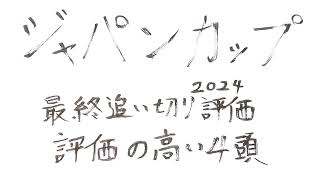 ジャパンカップ
2024
最終追い切り評価
評価の高い4頭